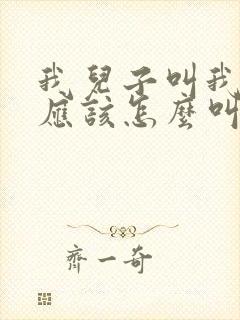 我兒子叫我
應該怎麼叫
齊一奇